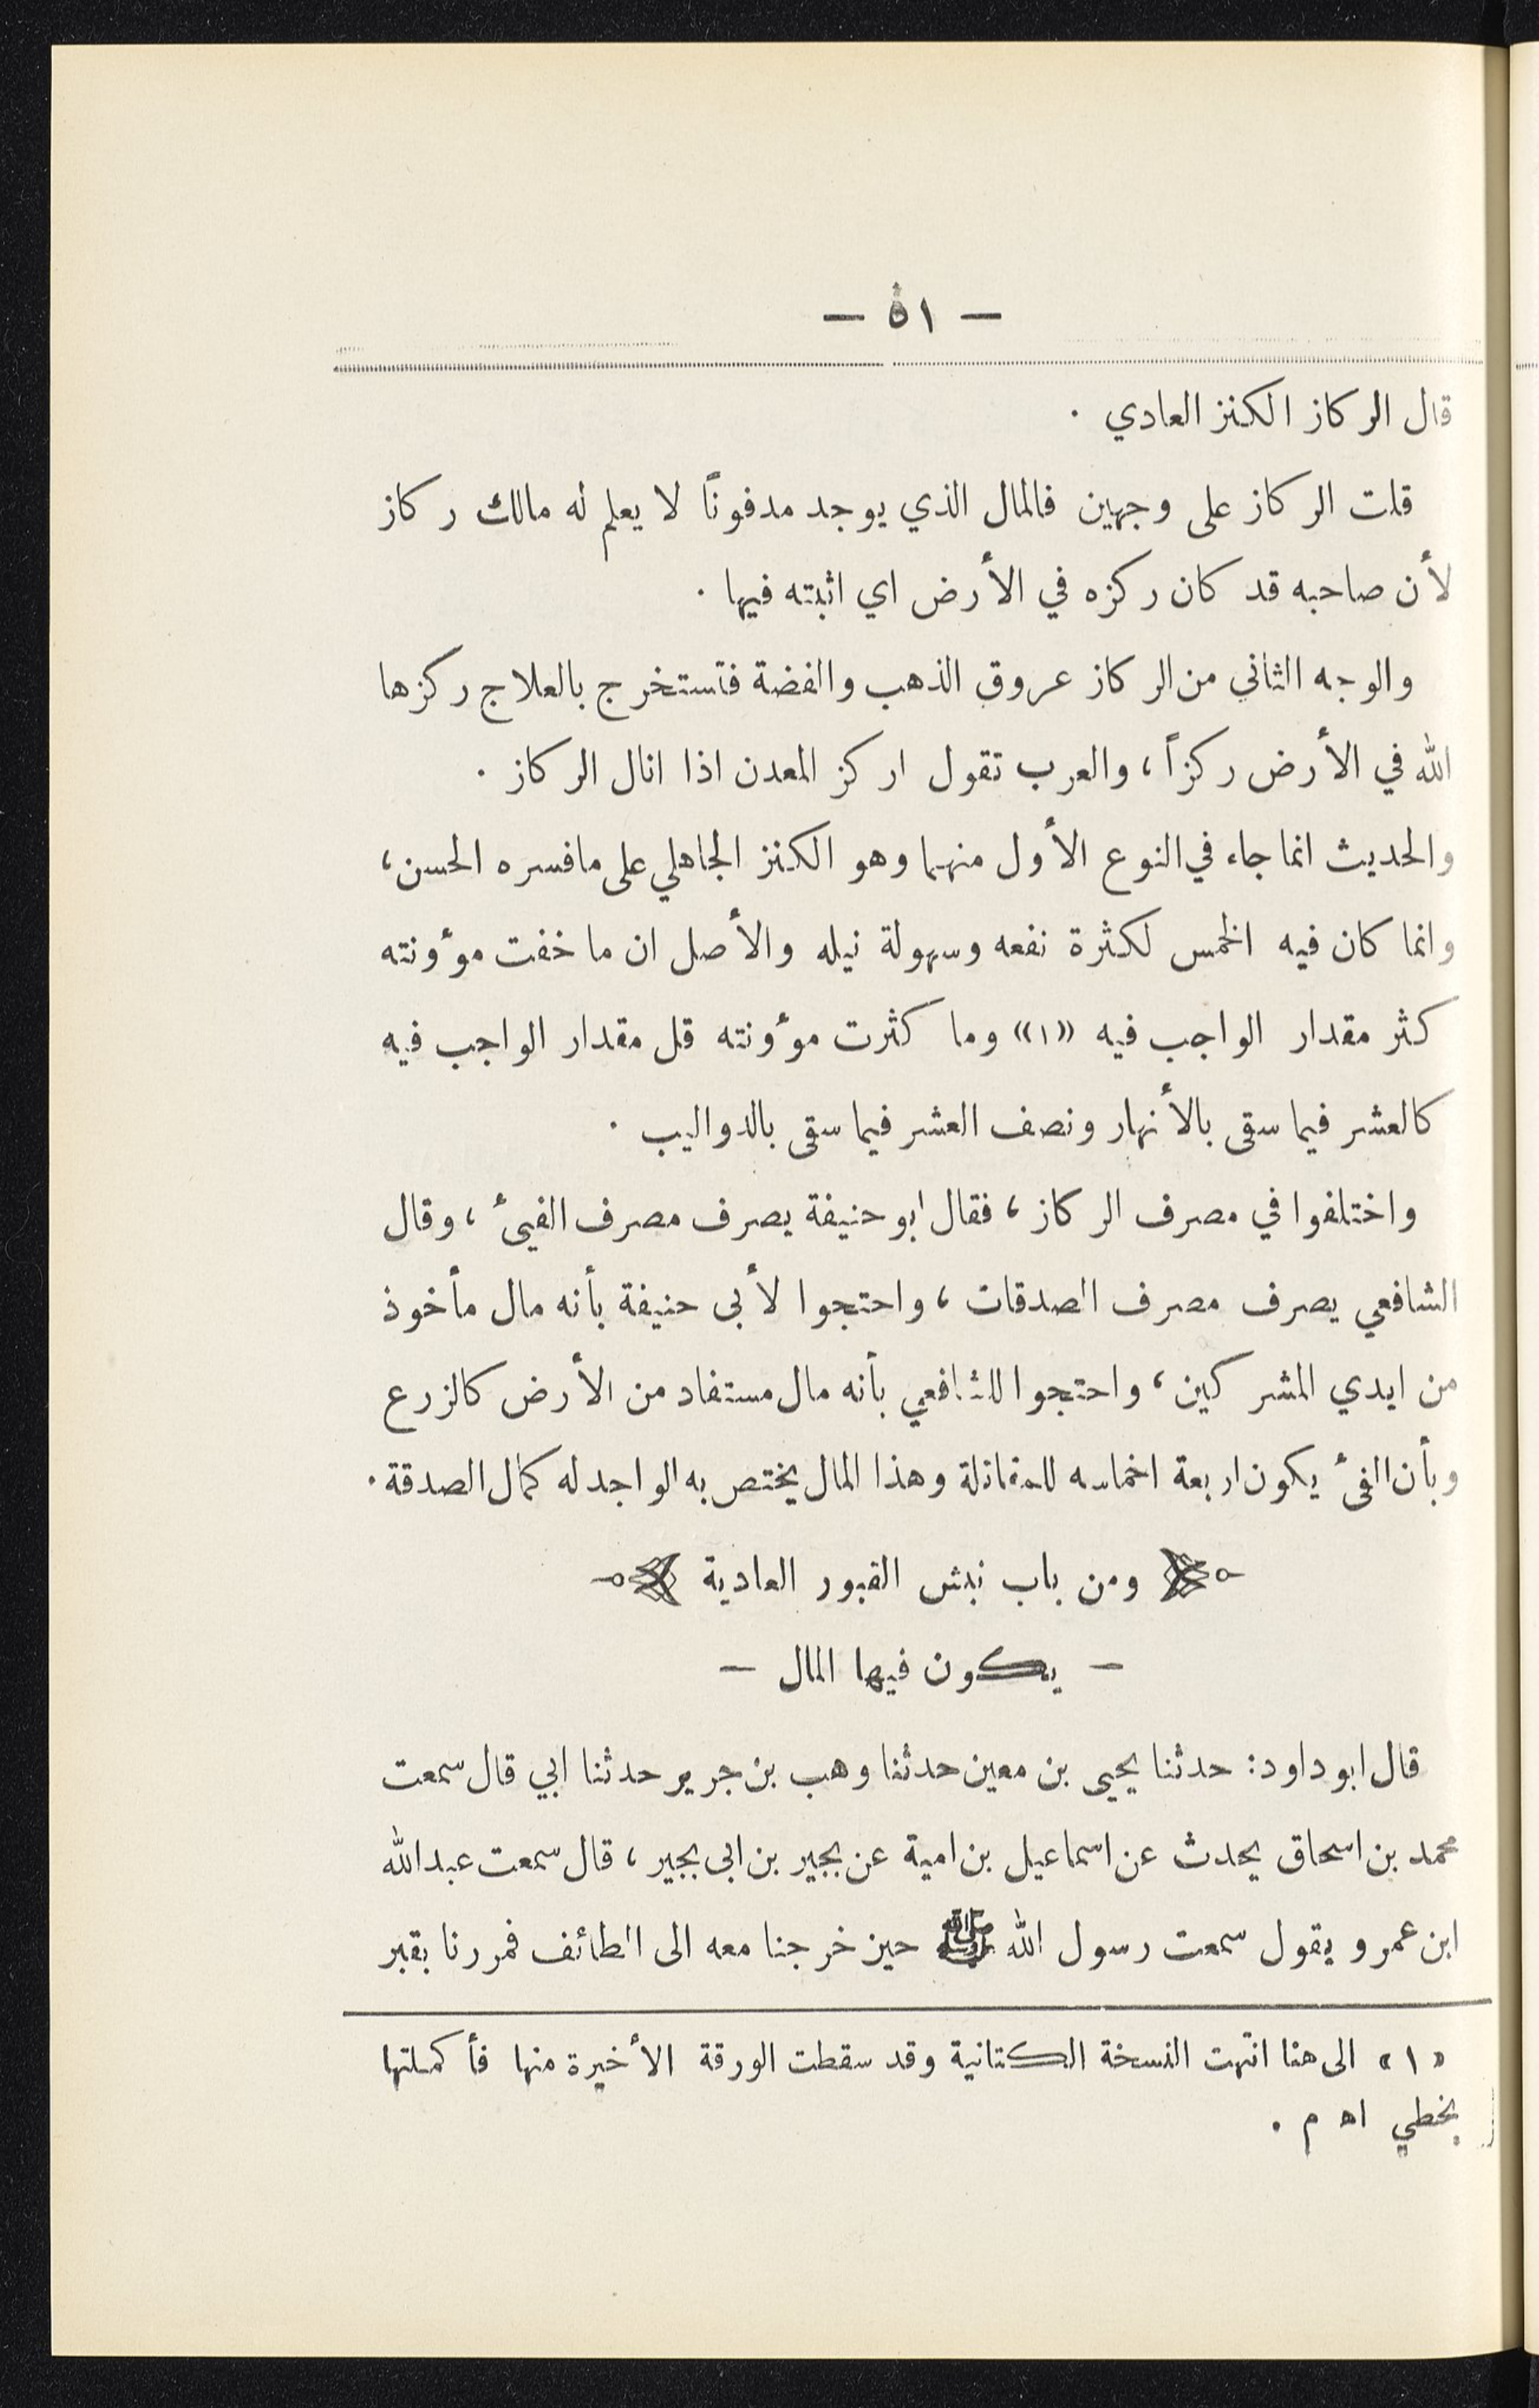 — ٥١ —
قال الركاز الكنز العادي .
قلت الركاز على وجهين فالمال الذي يوجد مدفوناً لا يعلم له مالك ركاز
لأن صاحبه قد كان ركزه في الأرض اي اثبته فيها .
والوجه الثاني من الركاز عروق الذهب والفضة فتستخرج بالعلاج ركزها
الله في الأرض ركزاً ، والعرب تقول اركز المعدن اذا انال الركاز .
والحديث انما جاء في النوع الأول منهما وهو الكنز الجاهلي على ما فسره الحسن ،
وانما كان فيه الخمس لكثرة نفعه وسهولة نيله والأصل ان ما خفت موؤنته
كثر مقدار الواجب فيه «١» وما كثرت موؤنته قل مقدار الواجب فيه
كالعشر فيما سقى بالأنهار ونصف العشر فيما سقى بالدواليب .
واختلفوا في مصرف الركاز ، فقال ابو حنيفة يصرف مصرف الفيئ ، وقال
الشافعي يصرف مصرف الصدقات ، واحتجوا لأبى حنيفة بأنه مال مأخوذ
من ايدي المشركين ، واحتجوا للشافعي بأنه مال مستفاد من الأرض كالزرع
وبأن الفئ يكون اربعة اخماسه للمقاتلة وهذا المال يختص به الواجد له كمال الصدقة .
ومن باب نبش القبور العادية
— يكون فيها المال —
قال ابو داود : حدثنا يحيى بن معين حدثنا وهب بن جرير حدثنا ابي قال سمعت
محمد بن اسحاق يحدث عن اسماعيل بن امية عن بجير بن ابى بجير ، قال سمعت عبدالله
ابن عمرو يقول سمعت رسول الله ﷺ حين خرجنا معه الى الطائف فمررنا بقبر
«١» الى هنا انتهت النسخة الكتانية وقد سقطت الورقة الأخيرة منها فأكملتها
بخطي اه م .